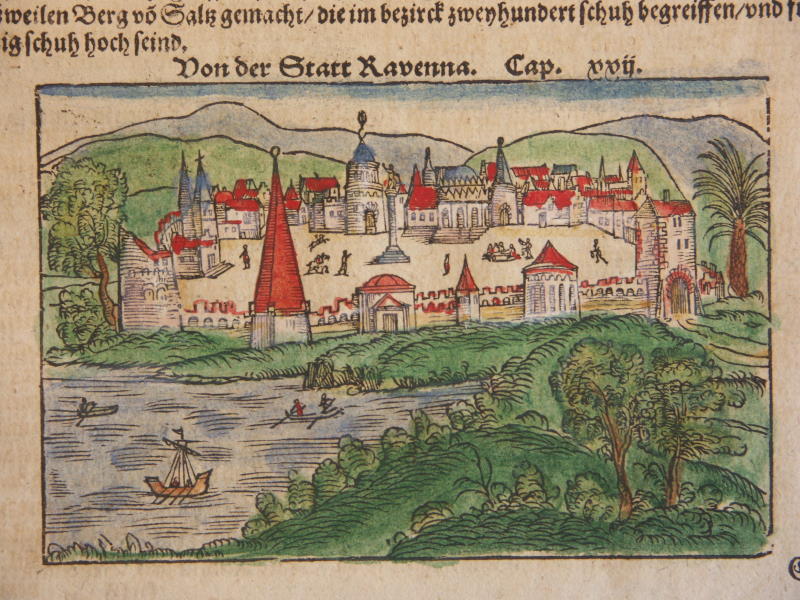 zweilen Berg võ Saltz gemacht/ die im bezirck zweyhundert schuh begreiffen/ vnd
ig schuh hoch seind.
Von der Statt Ravenna. Cap. xxij.